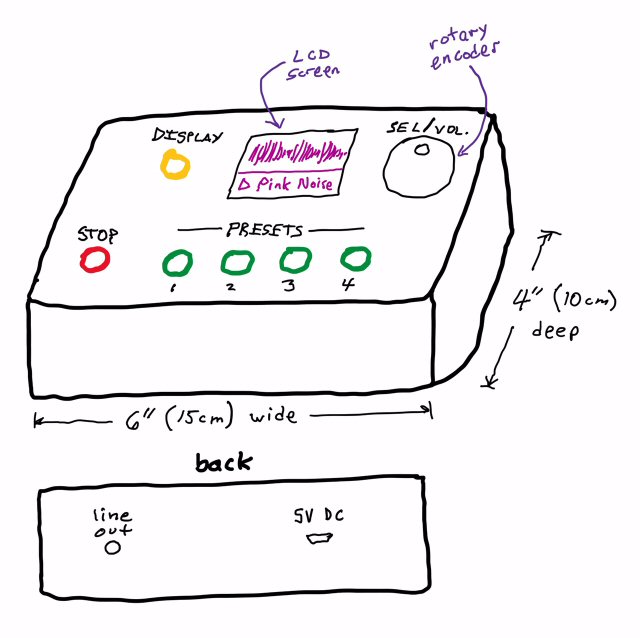 LCD
screen
rotary
encoder
DISPLAY
SEL/VOL.
▷ Pink Noise
STOP
PRESETS
1 2 3 4
4" (10cm)
deep
6" (15cm) wide
back
line
out
5V DC